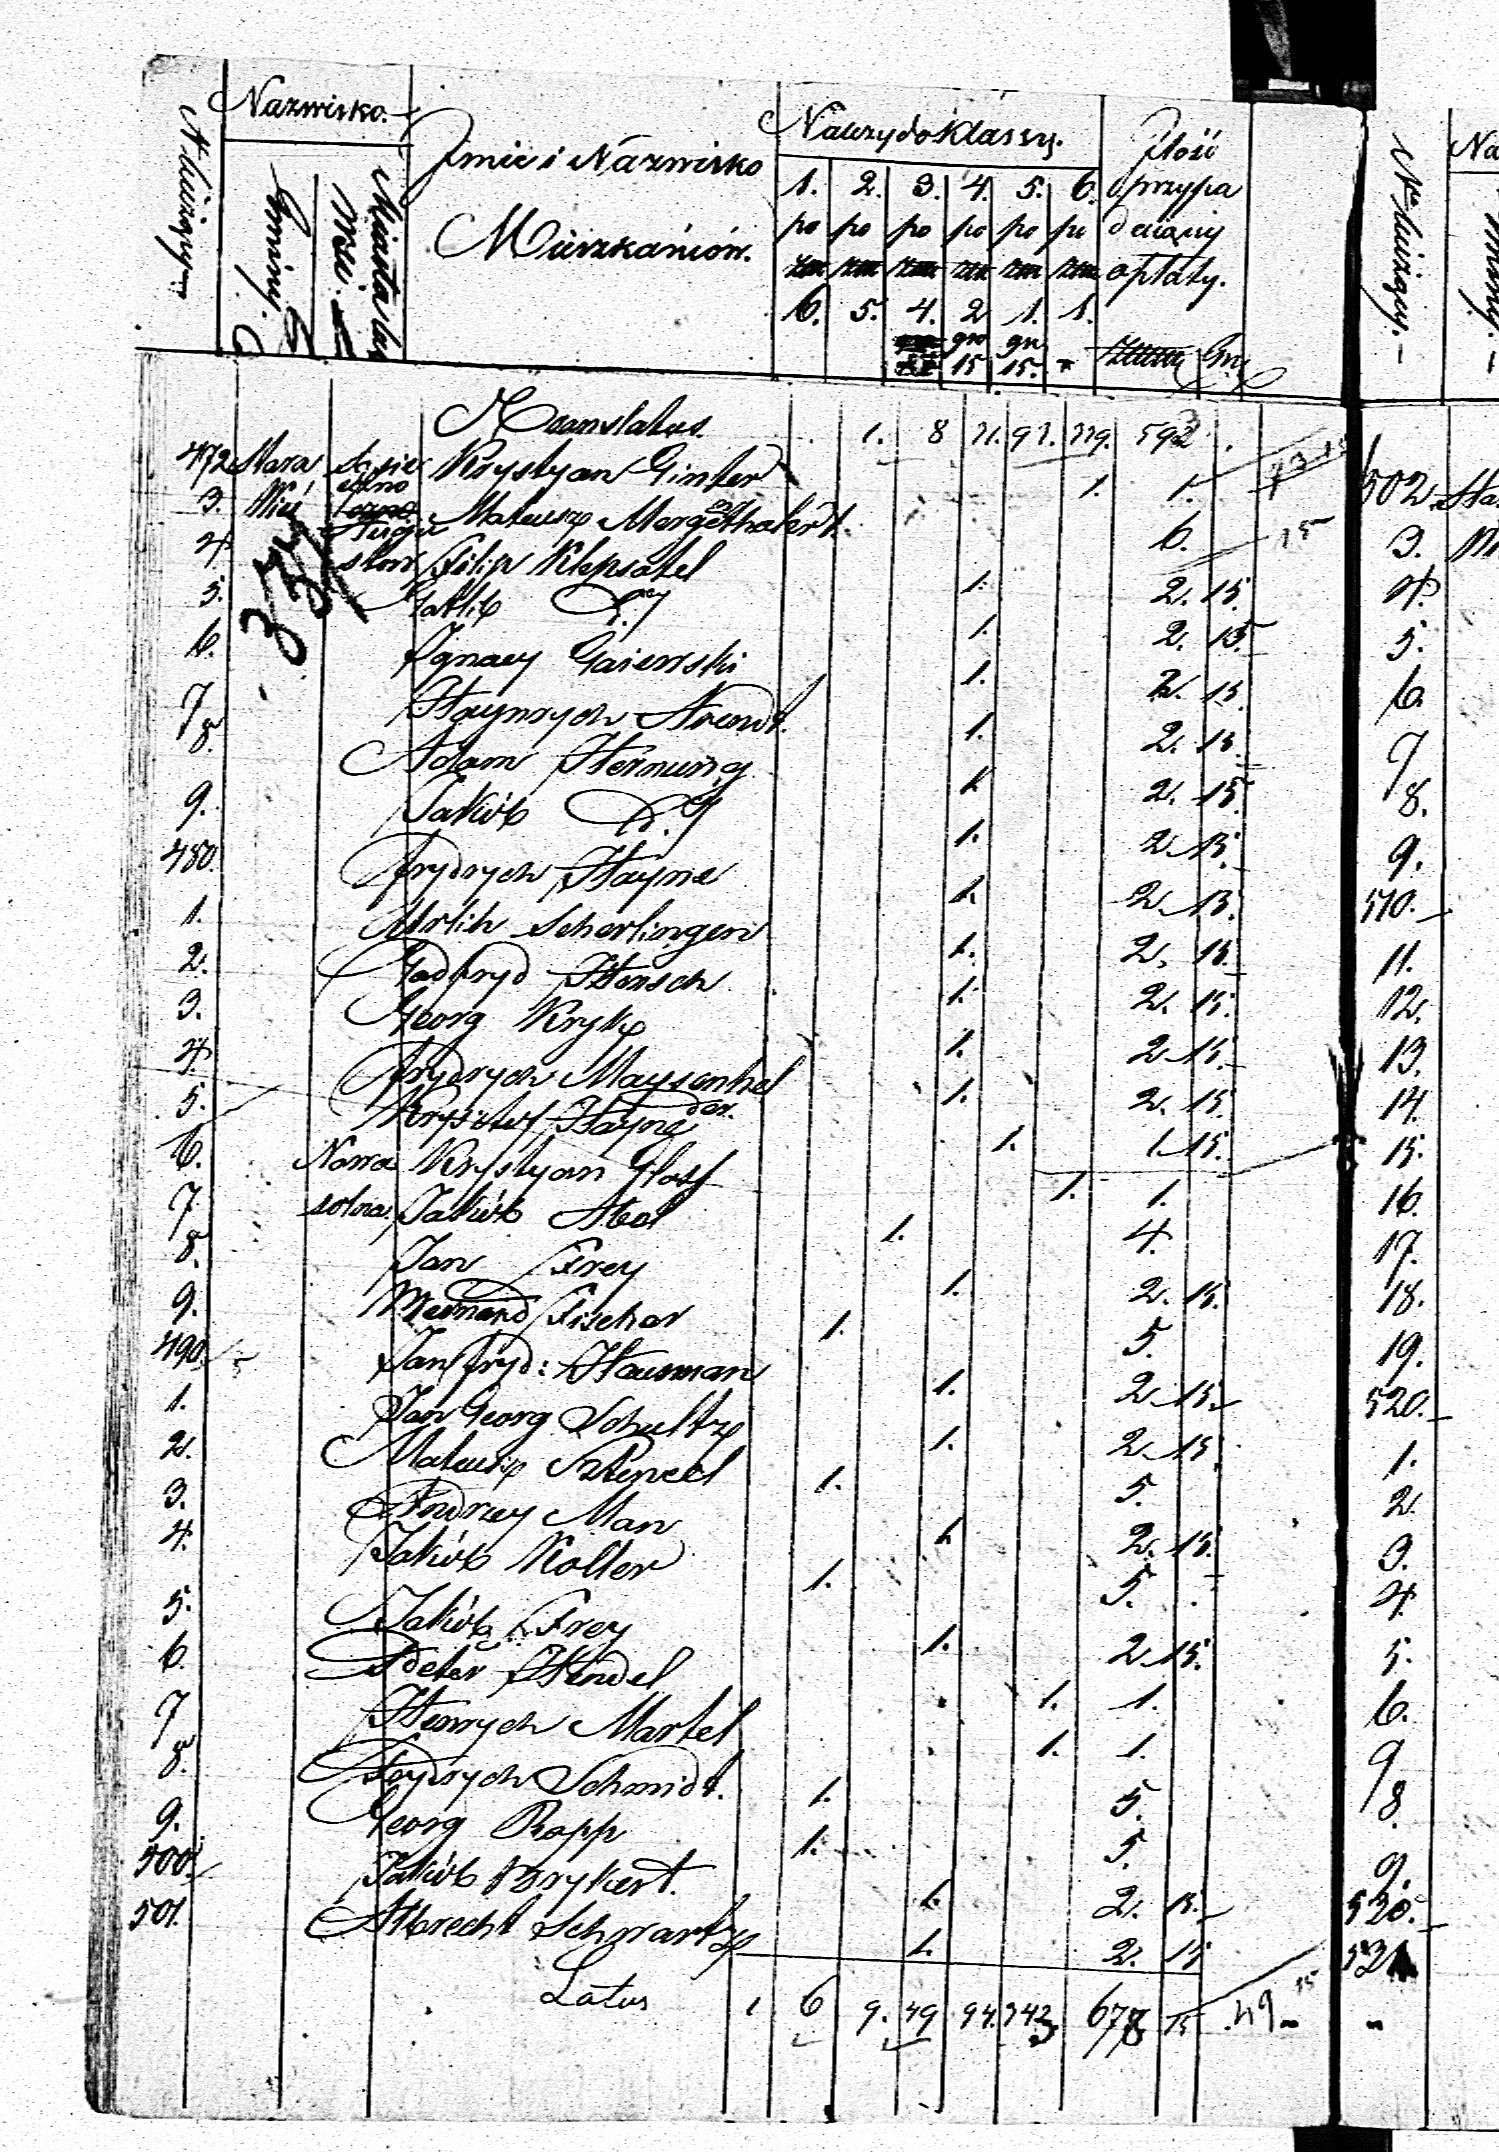 Nazwisko.
Imie i Nazwisko
Mieszkańców.
Należy do Klassy.
Ilość
przypa
daiącey
opłaty.
1. 2. 3. 4. 5. 6.
po po po po po po
6. 5. 4. 2 1. 1.
gro gr.
15 15.
Gminy.
Miasta lub
Wsi.
Transлatus. 1. 8 21. 91. 339. 592
472 Stara Krystyan Ginter 1. 1.
3. Wieś Mateusz Mergethaler 1. 6.
4. Filip Klepsatel 1. 2. 15.
5. Gotlib D. 1. 2. 15.
6. Ignacy Gaiewski 1. 2. 15.
7 Haynrych Arendt. 1. 2. 15.
8. Adam Hernung 1. 2. 15.
9. Jakób D. 1. 2. 15.
480. Frydrych Hayne 1. 2. 15.
1. Urlih Scherlingen 1. 2. 15.
2. Godfryd Hensch 1. 2. 15.
3. Georg Kryk 1. 2. 15.
4. Frydrych Maysenhel
der. 1. 2. 15.
5. Krysztof Hayne 1. 1. 15.
6. Nowa Krystyan Glass 1. 1.
7. solna Jakób Abel 1. 4.
8. Jan Frey 1. 2. 15.
9. Fischer 1. 5.
490. Jan fryd: Hausman 1. 2. 15.
1. Jan Georg Schultz 1. 2. 15.
2. Mateusz 1. 5.
3. Andrzey Man 1. 2. 15.
4. Jakób Koller 1. 5.
5. Jakób Frey 1. 2. 15.
6. Peter Hendel 1. 1.
7 Henrych Martel 1. 1.
8. Frydrych Schmidt. 1. 5.
9. Georg Rapp 1. 5.
500. Jakób Brykert. 1. 2. 15.
501. Albrecht Schwartz 1. 2. 15
Latus 1 6 9. 49 94. 343 678 15 49 15
502. Sta
3.
4.
5.
6.
7
8.
9.
510.
11.
12.
13.
14.
15.
16.
17.
18.
19.
520.
1.
2.
3.
4.
5.
6.
7
8.
9.
530.
531